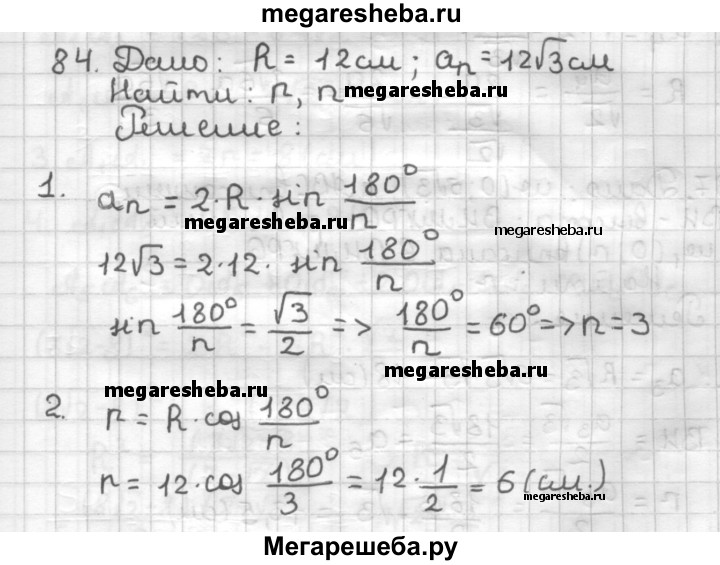 megaresheba.ru
84. Дано: R = 12 см; aₙ = 12√3 см
Найти: r, n
megaresheba.ru
Решение:
1. aₙ = 2·R·sin 180°/n
megaresheba.ru
megaresheba.ru
12√3 = 2·12· sin 180°/n
sin 180°/n = √3/2 => 180°/n = 60° => n = 3
megaresheba.ru
megaresheba.ru
2. r = R·cos 180°/n
r = 12·cos 180°/3 = 12·1/2 = 6 (см.)
megaresheba.ru
Мегарешеба.ру